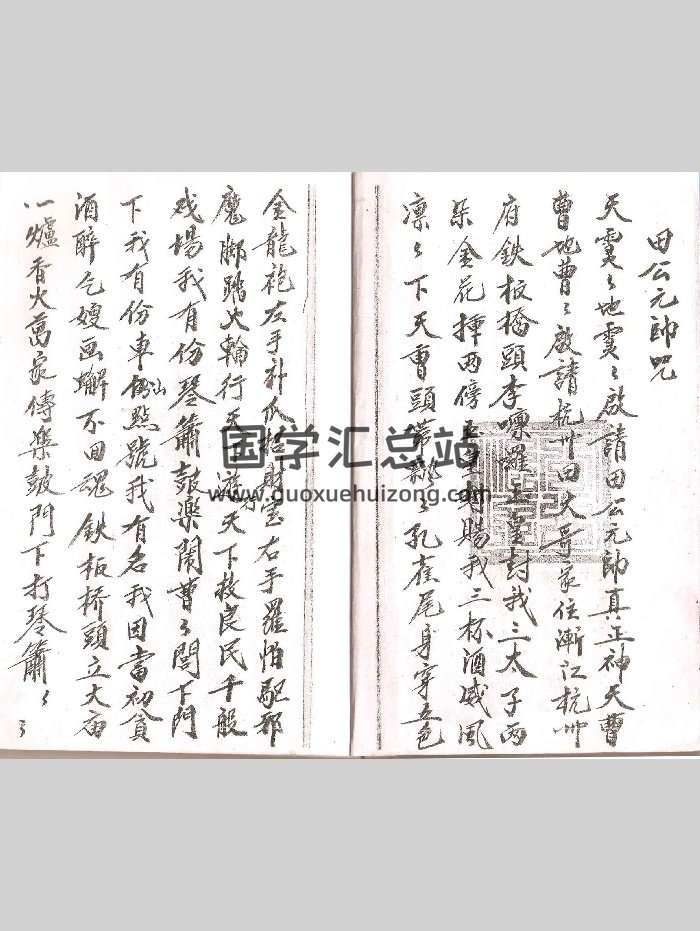 田公元帥咒
天靈々地靈々啟請田公元帥真正神天曹
曹地曹々啟請杭州田大哥家住浙江杭州
府鉄板橋頭李㗚囉玉皇封我三太子兩
朵金花挿兩傍玉皇封賜我三杯酒威風
凛々下天曹頭帶 孔雀尾身穿五色
金龍袍左手 右手羅怕駆邪
魔脚踏火輪行天下 天下救良民千般
戏場我有份琴簫鼓楽鬧曹々閂下門
下我有份車 出點號我有名我因當初貪
酒醉乞嫂画 不回魂鉄板桥頭立大庙
一爐香火萬家傳楽鼓門下打琴簫々々
国学汇总站
www.guoxuehuizong.com